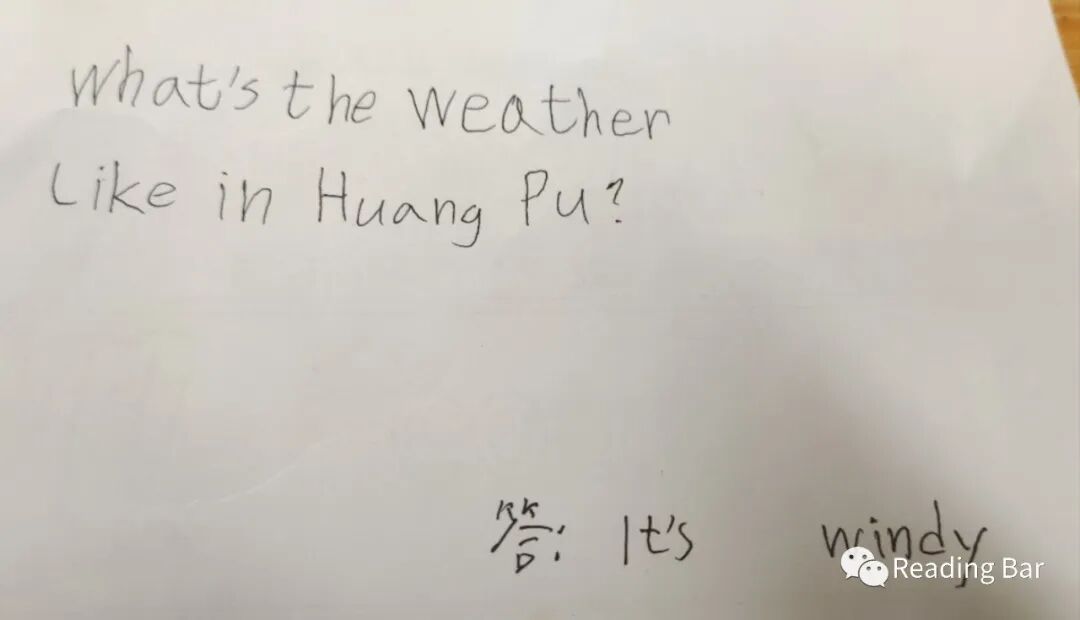 What's the weather
Like in Huang Pu?
答: It's windy
Reading Bar